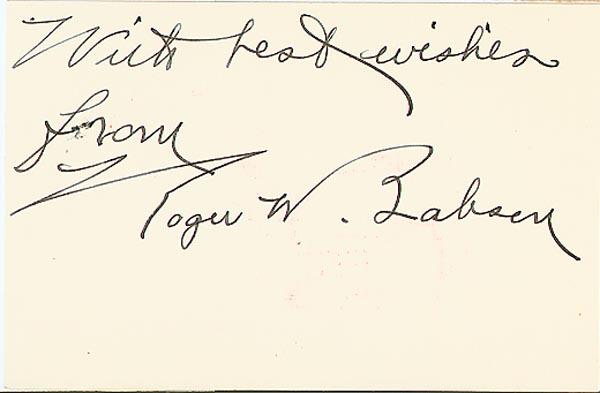 With best wishes
from
Roger W. Babson